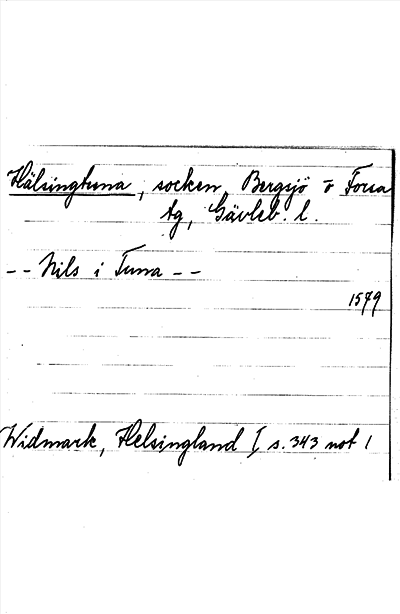 Hälsingtuna, socken, Bergsjö o Forsa
tg, Gävleb. l.
-- Nils i Tuna --
1579
Widmark, Helsingland I, s. 343 not 1